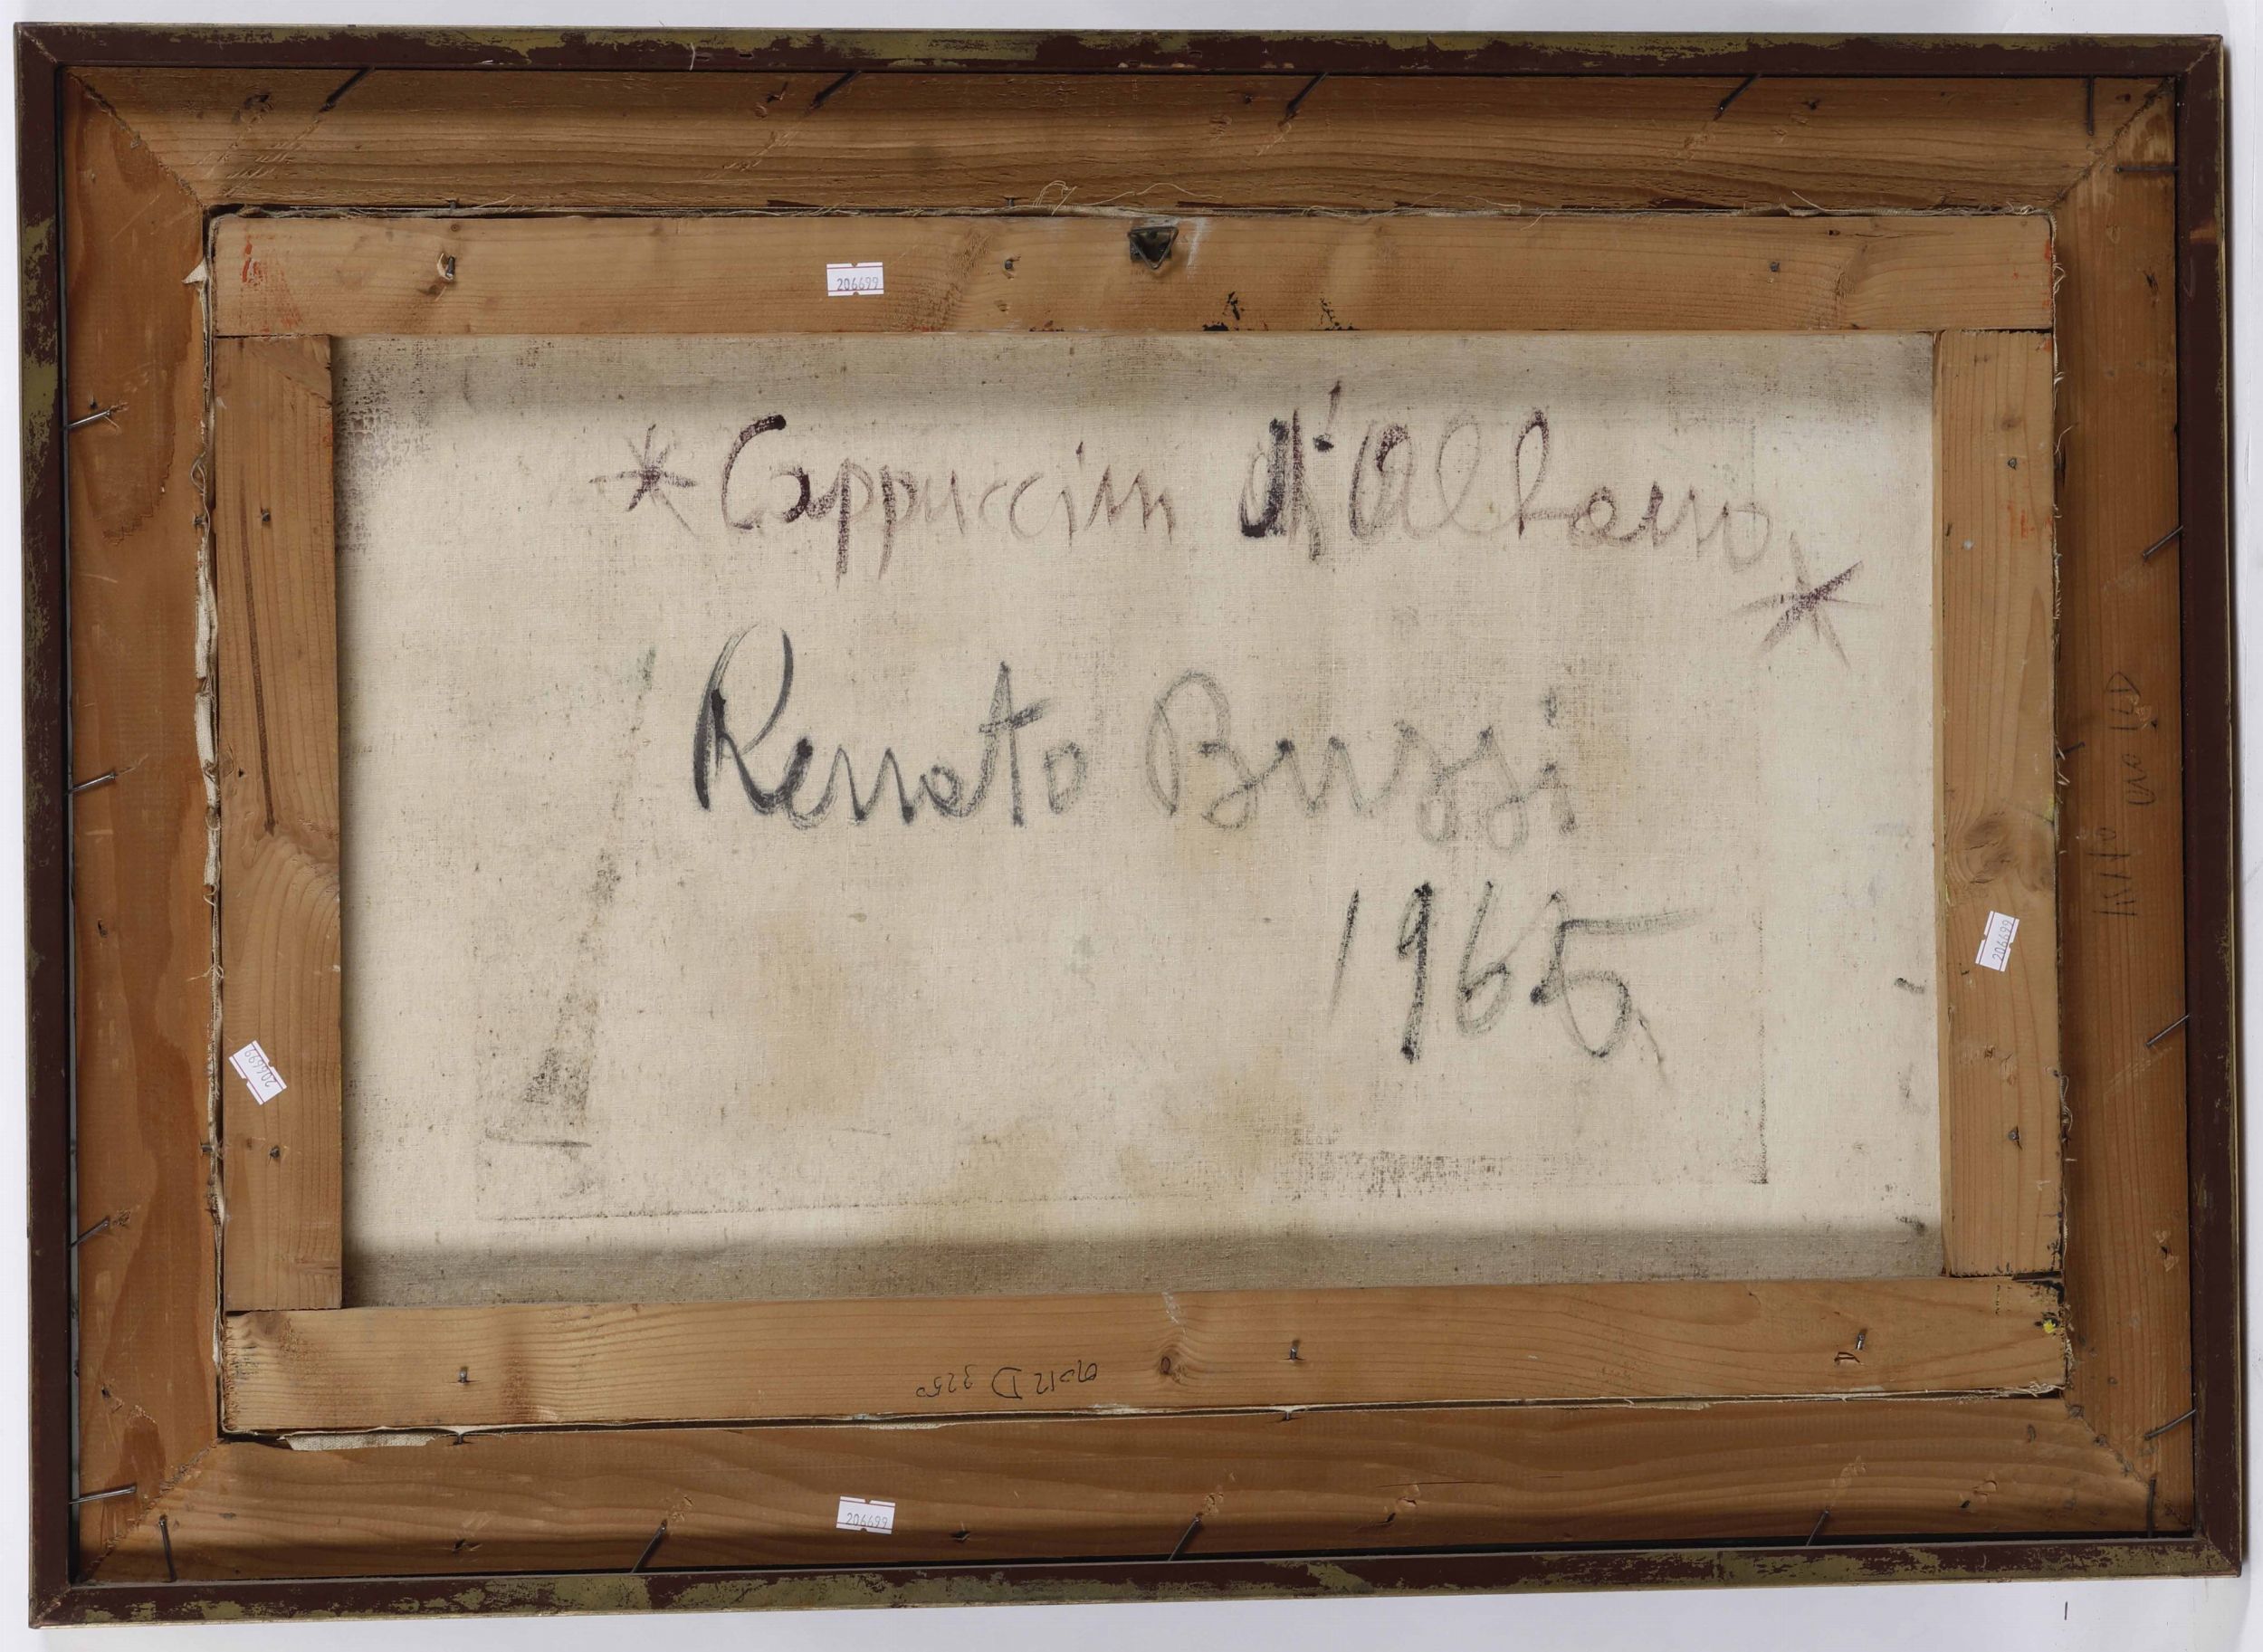 206699
* Cappuccini d'Albano *
Renato Bussi
1965
206699
206699
206699